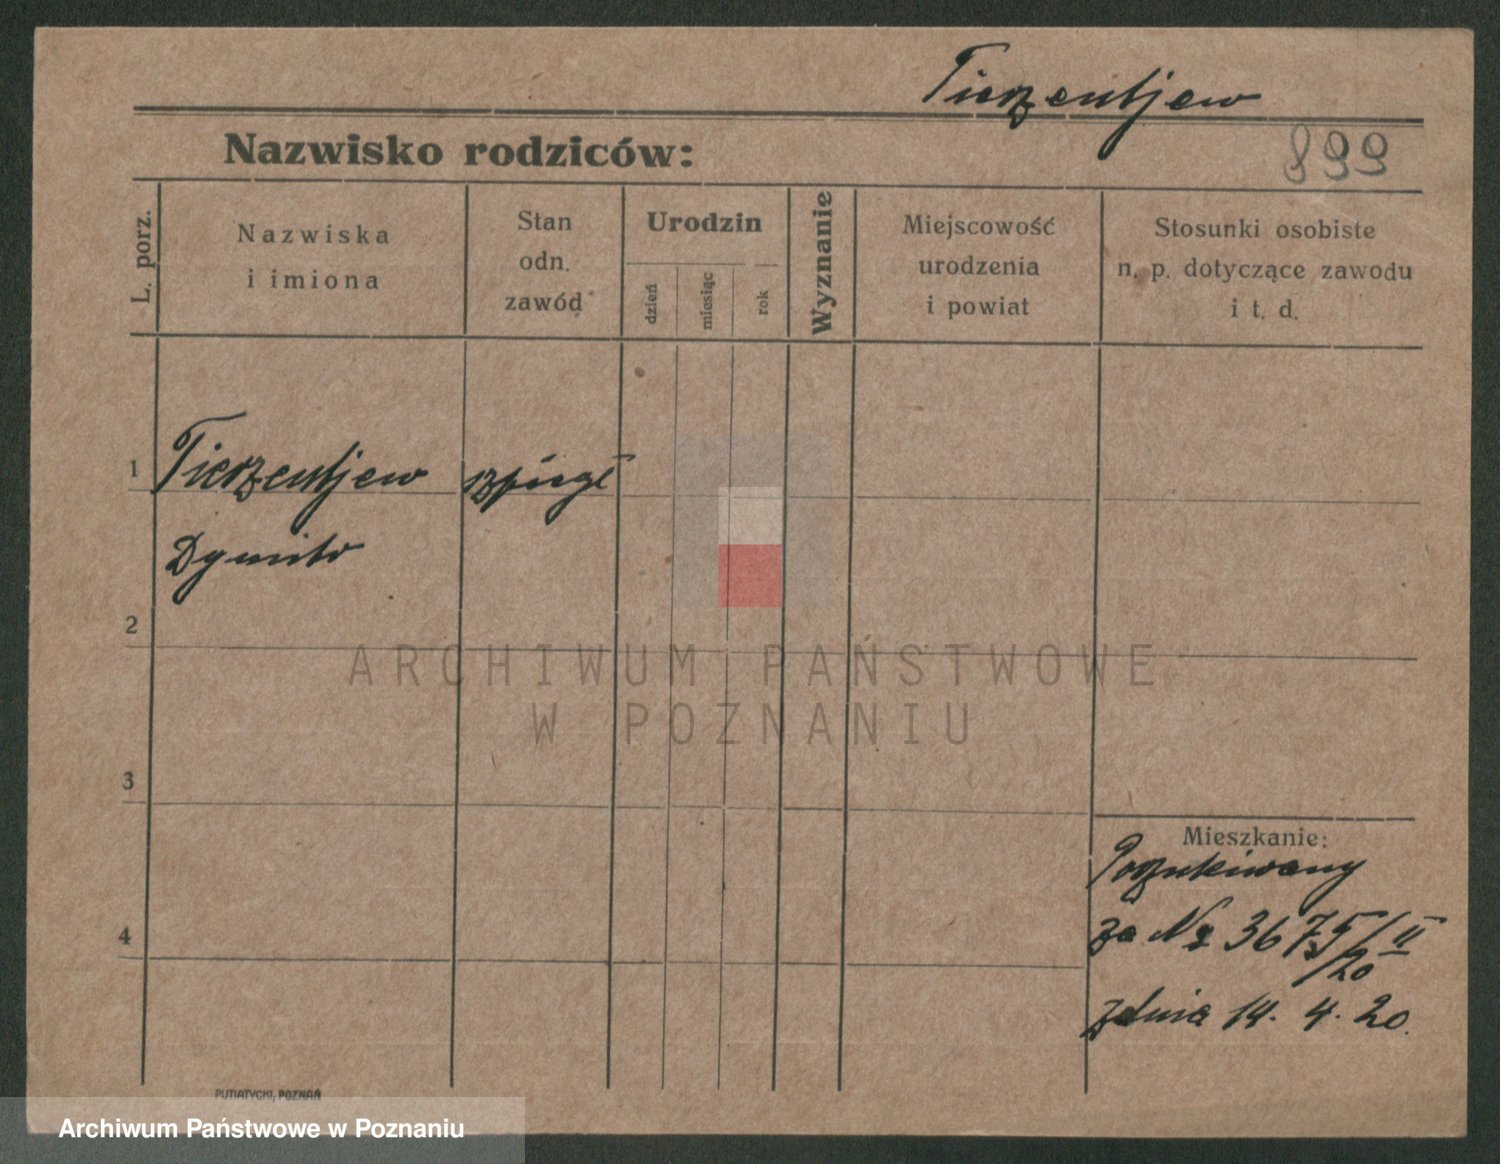 Tierzentjew
Nazwisko rodziców:
899
L. porz.
Nazwiska
i imiona
Stan
odn.
zawód
Urodzin
dzień
miesiąc
rok
Wyznanie
Miejscowość
urodzenia
i powiat
Stosunki osobiste
n. p. dotyczące zawodu
i t. d.
1
Tierzentjew
Dymitr
2
ARCHIWUM PAŃSTWOWE
W POZNANIU
3
Mieszkanie:
Poszukiwany
za № 3675/II
/20
z dnia 14. 4. 20.
4
PUTIATYCKI, POZNAŃ
Archiwum Państwowe w Poznaniu